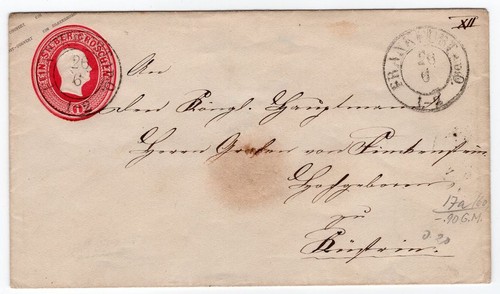 EIN SILBERGROSCHEN
102
26
6
XII
FRANKFURT a. Oder.
26
6
1-2
An
den Königl. Hauptmann
Herrn Grafen von Finkenstein
Hochgeboren
zu
Küstrin.
17a
-.90 G.M.